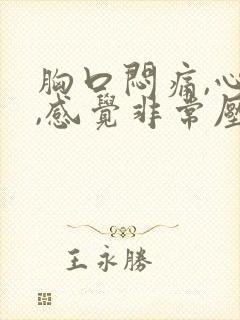 胸口悶痛,心
,感覺非常壓
王永勝